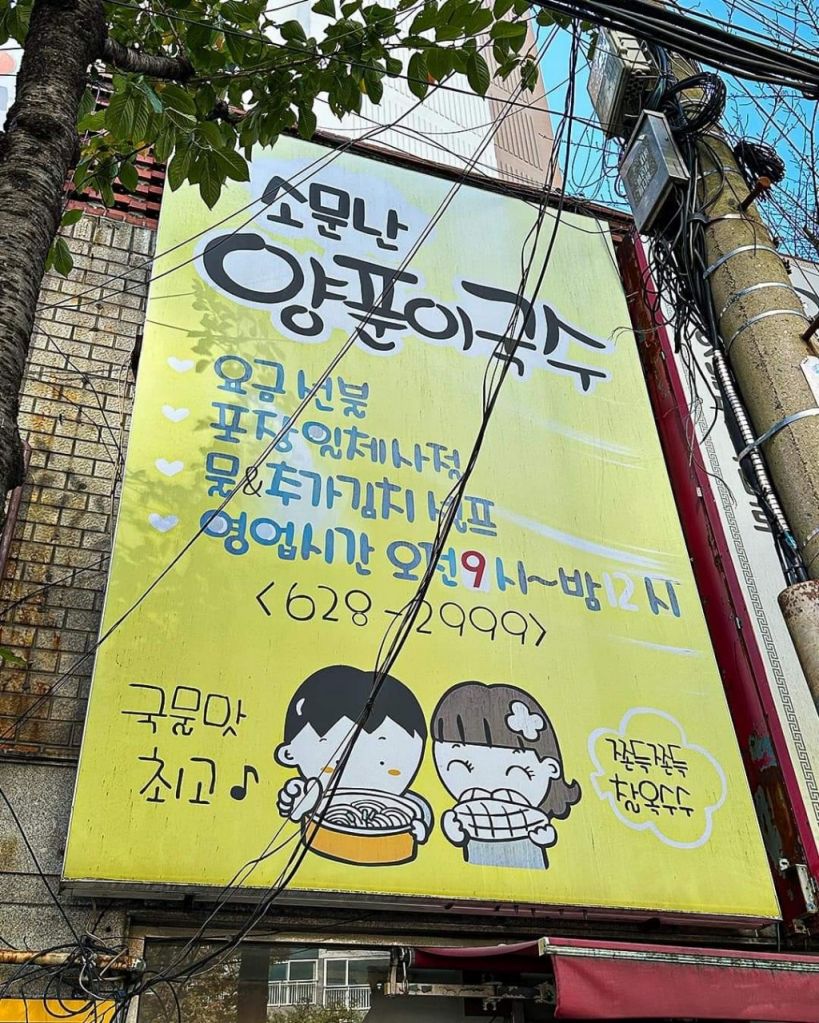 소문난
양푼이국수
요금선불
포장일체사절
물&추가김치 셀프
영업시간 오전9시~밤12시
<628-2999>
국물맛
최고♪
쫀득쫀득
찰옥수수